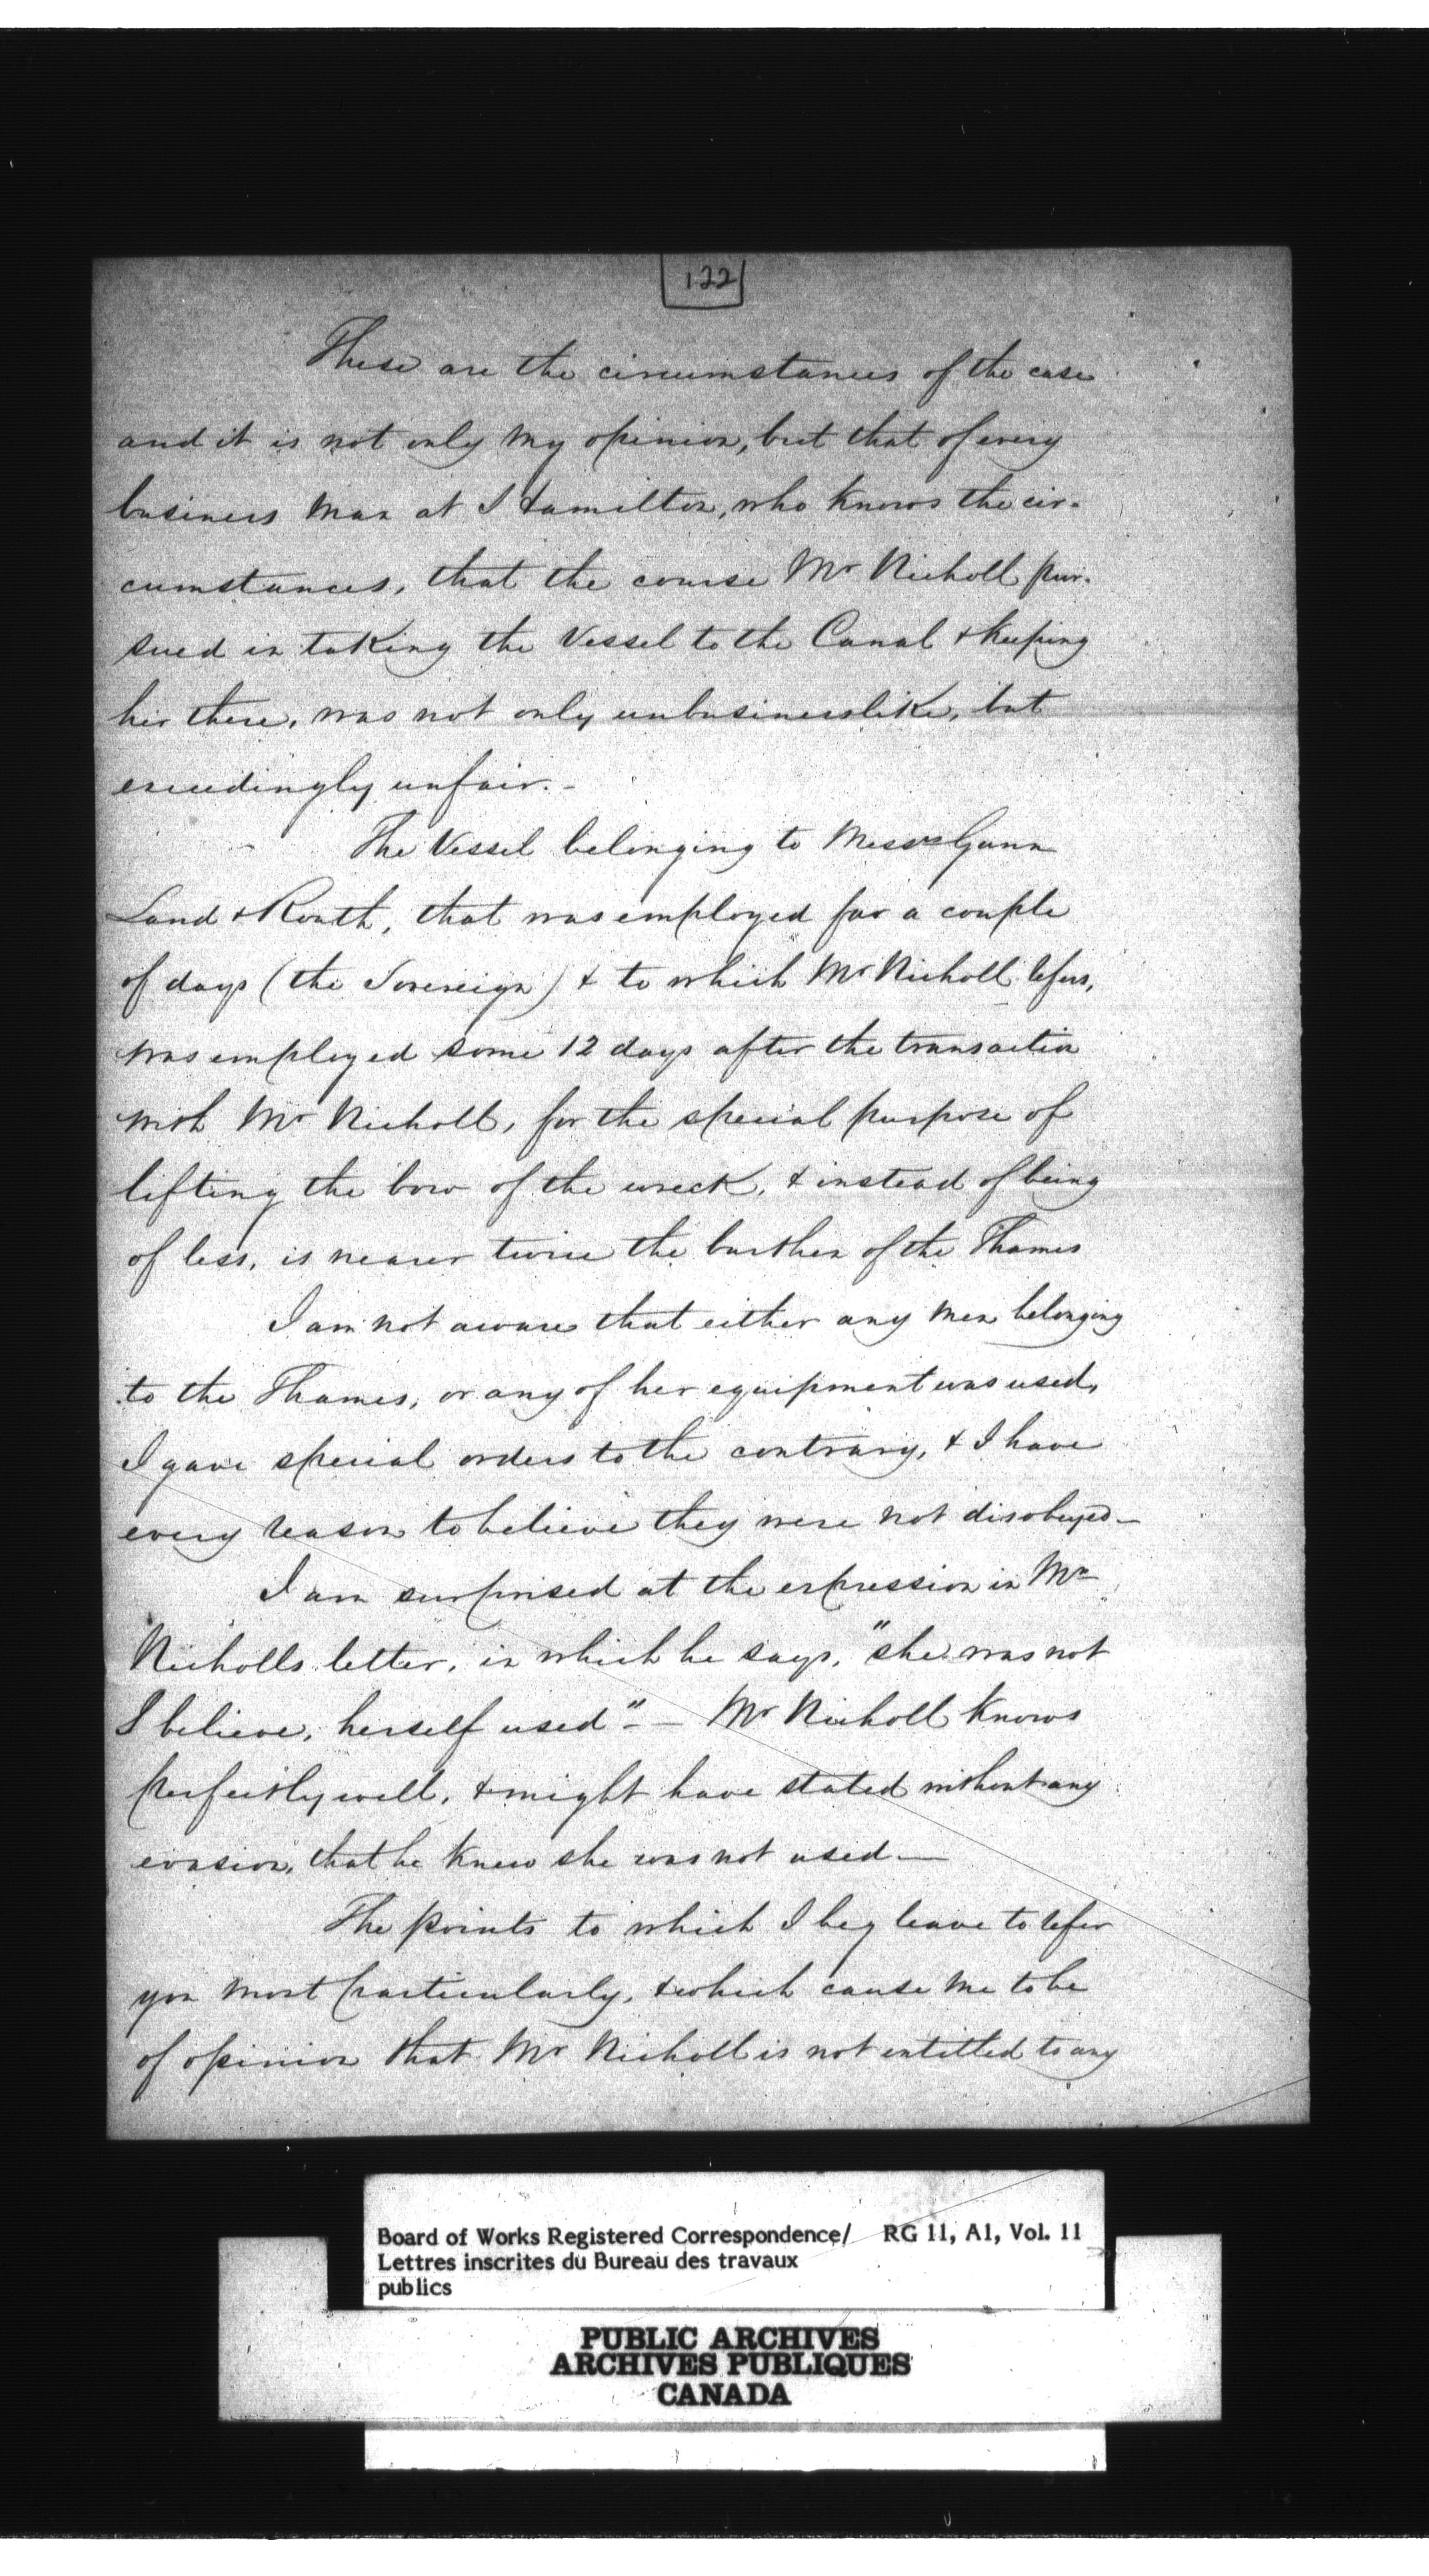 122
These are the circumstances of the case
and it is not only my opinion, but that of every
business man at Hamilton, who knows the cir-
cumstances, that the course Mr Nicholl pur-
sued in taking the Vessel to the Canal & keeping
her there, was not only unbusinesslike, but
exceedingly unfair. -
The Vessel belonging to Messrs Gunn
Land & Routh, that was employed for a couple
of days (the Sovereign) & to which Mr Nicholl refers,
was employed some 12 days after the transaction
with Mr Nicholl, for the special purpose of
lifting the bow of the wreck, & instead of being
of less, is nearer twice the burthen of the Thames
I am not aware that either any men belonging
to the Thames, or any of her equipment was used,
I gave special orders to the contrary, & I have
every reason to believe they were not disobeyed -
I am surprised at the expression in Mr
Nicholls letter, in which he says, "she was not
I believe, herself used" - - Mr Nicholl knows
perfectly well, & might have stated without any
evasion, that he knew she was not used -
The points to which I beg leave to refer
you most particularly, & which cause me to be
of opinion that Mr Nicholl is not entitled to any
Board of Works Registered Correspondence/ RG 11, A1, Vol. 11
Lettres inscrites du Bureau des travaux
publics
PUBLIC ARCHIVES
ARCHIVES PUBLIQUES
CANADA